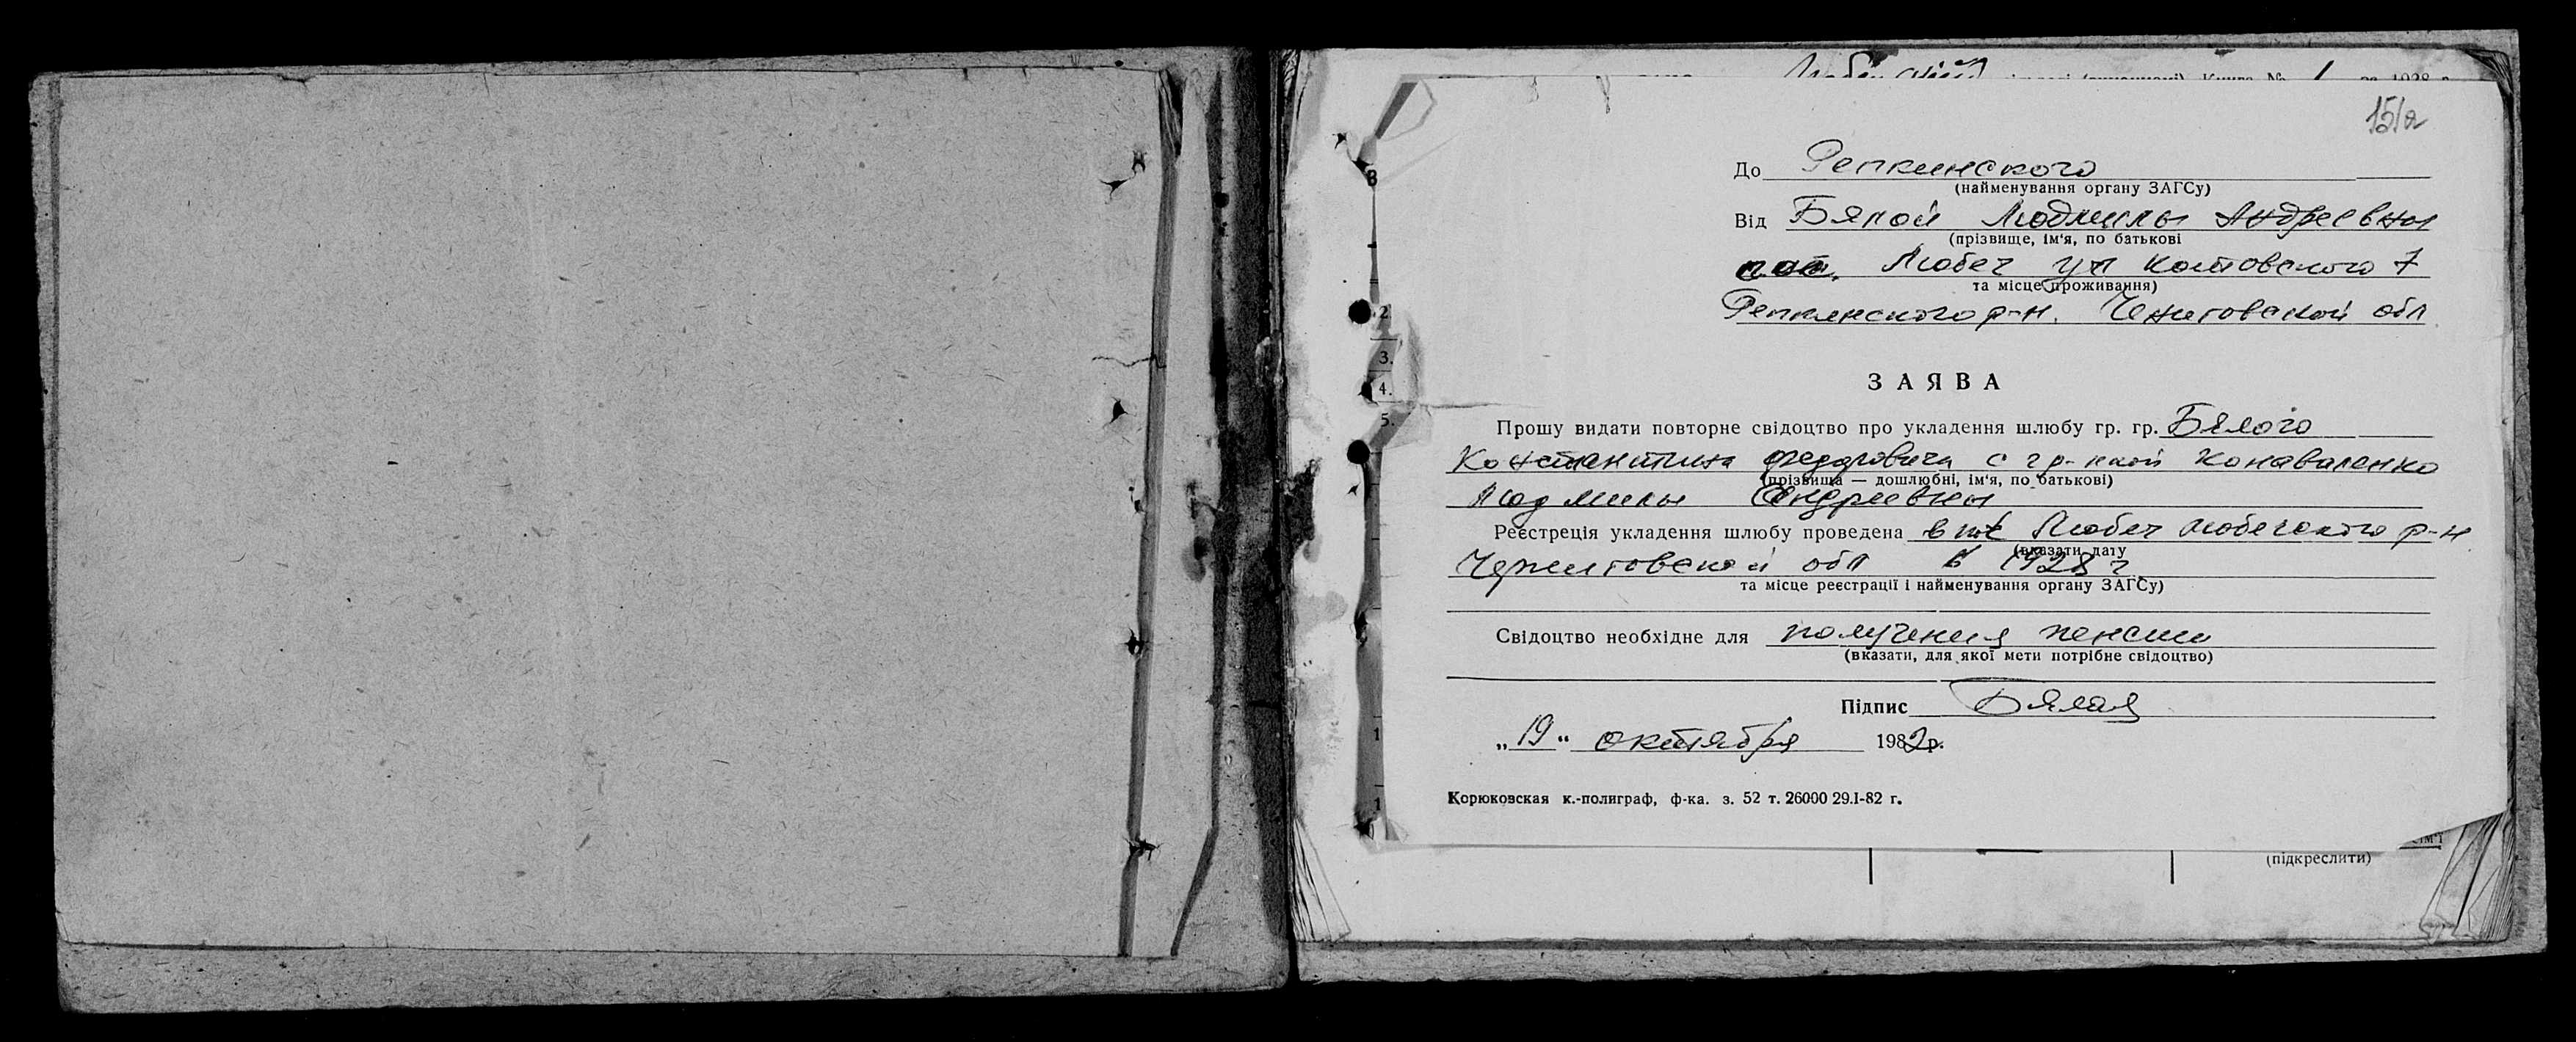 Любецькій Книга № 1 за 1928 р.
151а
До Репкинского
(найменування органу ЗАГСу)
Від Бялой Людмилы Андреевны
(прізвище, ім'я, по батькові
Любеч ул Котовского 7
та місце проживання)
Репкинского р-н. Чениговской обл
ЗАЯВА
Прошу видати повторне свідоцтво про укладення шлюбу гр. гр. Бялого
Константина Федоровича с гр-ной Конаваленко
(прізвища — дошлюбні, ім'я, по батькові)
Людмилы Андреевны
Реєстреція укладення шлюбу проведена в пгт Любеч Любечского р-н
(вказати дату
Черниговской обл в 1928 г
та місце реєстрації і найменування органу ЗАГСу)
Свідоцтво необхідне для получения пенсии
(вказати, для якої мети потрібне свідоцтво)
Підпис Бялая
„19“ октября 1982р.
Корюковская к.-полиграф, ф-ка. з. 52 т. 26000 29.I-82 г.
(підкреслити)
2.
3.
4.
5.